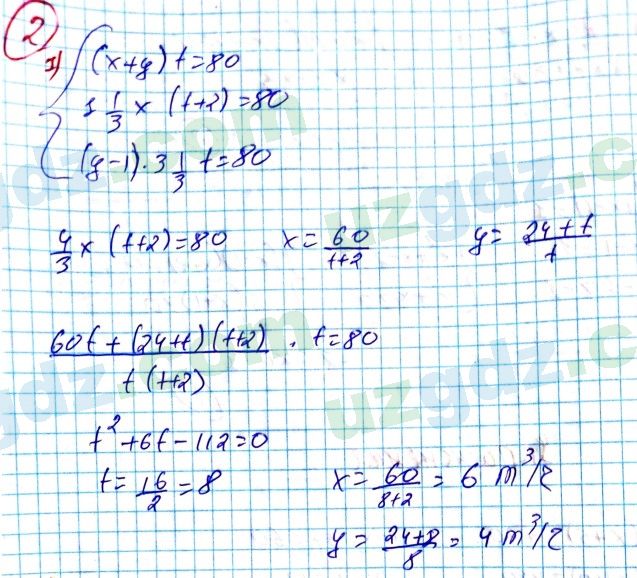 2
1) (x+y) t=80
1 1/3 x (t+2)=80
(y-1)·3 1/3 t=80
4/3 x (t+2)=80 x= 60/(t+2) y= (24+t)/t
(60t+(24+t)(t+2))/(t(t+2)) · t=80
t²+6t-112=0
t= 16/2 =8 x= 60/(8+2) = 6 m³/
y= (24+8)/8 = 4 m³/
uzgdz.com